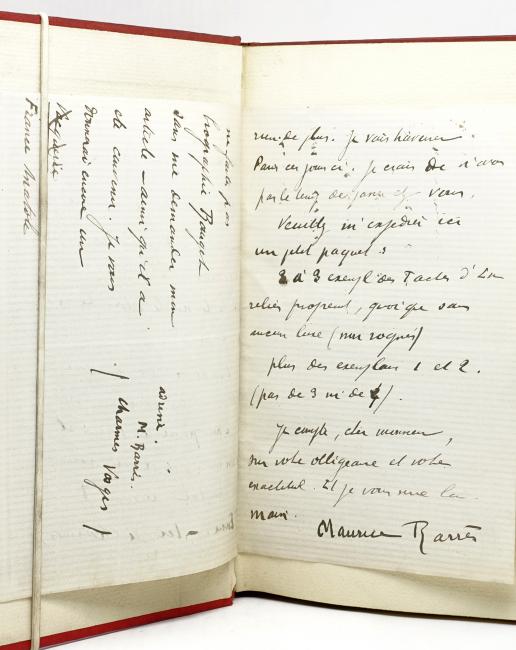 ne faites pas
biographie Bourget
sans me demander mon
article - ainsi qu'il a
été convenu. Je vous
donnerai encore un
France Anatole
adresse.
M. Barrès.
Charmes Vosges
rien de plus. Je vais traverser
Paris ces jours ci. Je crains de n'avoir
pas le temps de passer chez vous.
Veuillez m'expédier ici
un petit paquet :
2 à 3 exempl. des Taches d'Encre
reliés proprement, quoique sans
aucun luxe (non rognés)
plus des exemplaires 1 et 2.
(pas de 3 ni de 4).
Je compte, cher monsieur,
sur votre obligeance et votre
exactitude. Et je vous serre la
main.
Maurice Barrès